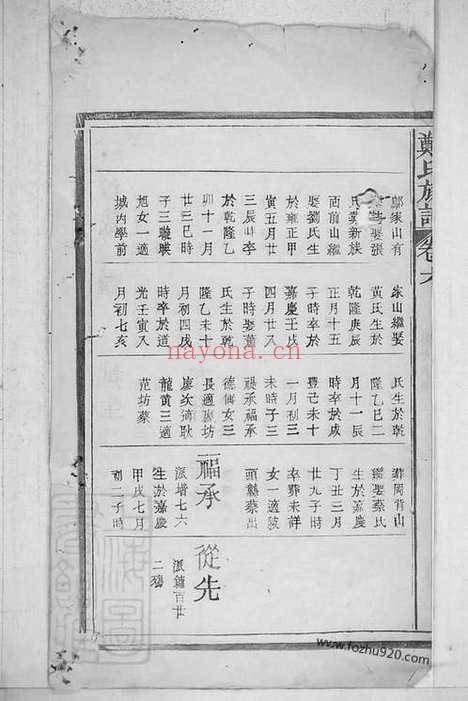 鄭氏族譜 卷六
鄒家山有
娶張
氏葬新族
面前山繼
娶劉氏生
於雍正甲
寅五月廿
三辰時卒
於乾隆乙
卯十一月
廿三巳時
子三璇瑛
旭女一適
城內學前
家山繼娶
黃氏生於
乾隆庚辰
正月十五
子時卒於
嘉慶壬戌
四月廿八
子時娶董
氏生於乾
隆乙未十
月初四戌
時卒於道
光壬寅又
月初七亥
氏生於乾
隆乙巳二
月十一辰
時卒於咸
豐己未十
一月初三
未時子三
福承福承
德仙女三
長適陵坊
廖次適耿
龍黃三適
范坊蔡
葬周背山
繼娶蔡氏
生於嘉慶
丁丑三月
廿九子時
卒葬未詳
女一適陵
頭縣蔡出
福承
派增七六
生於嘉慶
甲戌七月
初二子時
從先
派鏞百廿
二
nayona.cn
www.fozhu920.com